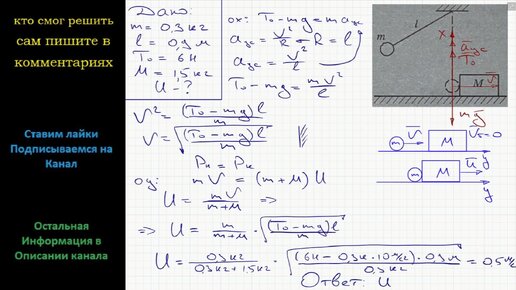 кто смог решить
сам пишите в
комментариях
Ставим лайки
Подписываемся на
Канал
Остальная
Информация в
Описании канала
Дано:
m = 0,3 кг
l = 0,9 м
T₀ = 6 Н
M = 1,5 кг
U - ?
ox: T₀ - mg = m aцс
aцс = V²/R → R = l
aцс = V²/l
T₀ - mg = mV²/l
V² = (T₀ - mg) l / m
V = √((T₀ - mg) l / m)
Pн = Pк
oy: mV = (m + M) U
U = mV/(m+M) ⇒
⇒ U = m/(m+M) · √((T₀ - mg) l / m)
U = 0,3 кг/(0,3 кг + 1,5 кг) · √((6Н - 0,3 кг · 10 м/с²) · 0,9 м / 0,3 кг) = 0,5 м/с
Ответ: U
m
l
x
aцс
T₀
M
V
mg
m
V
M
V₀ = 0
y
m
M
U
y